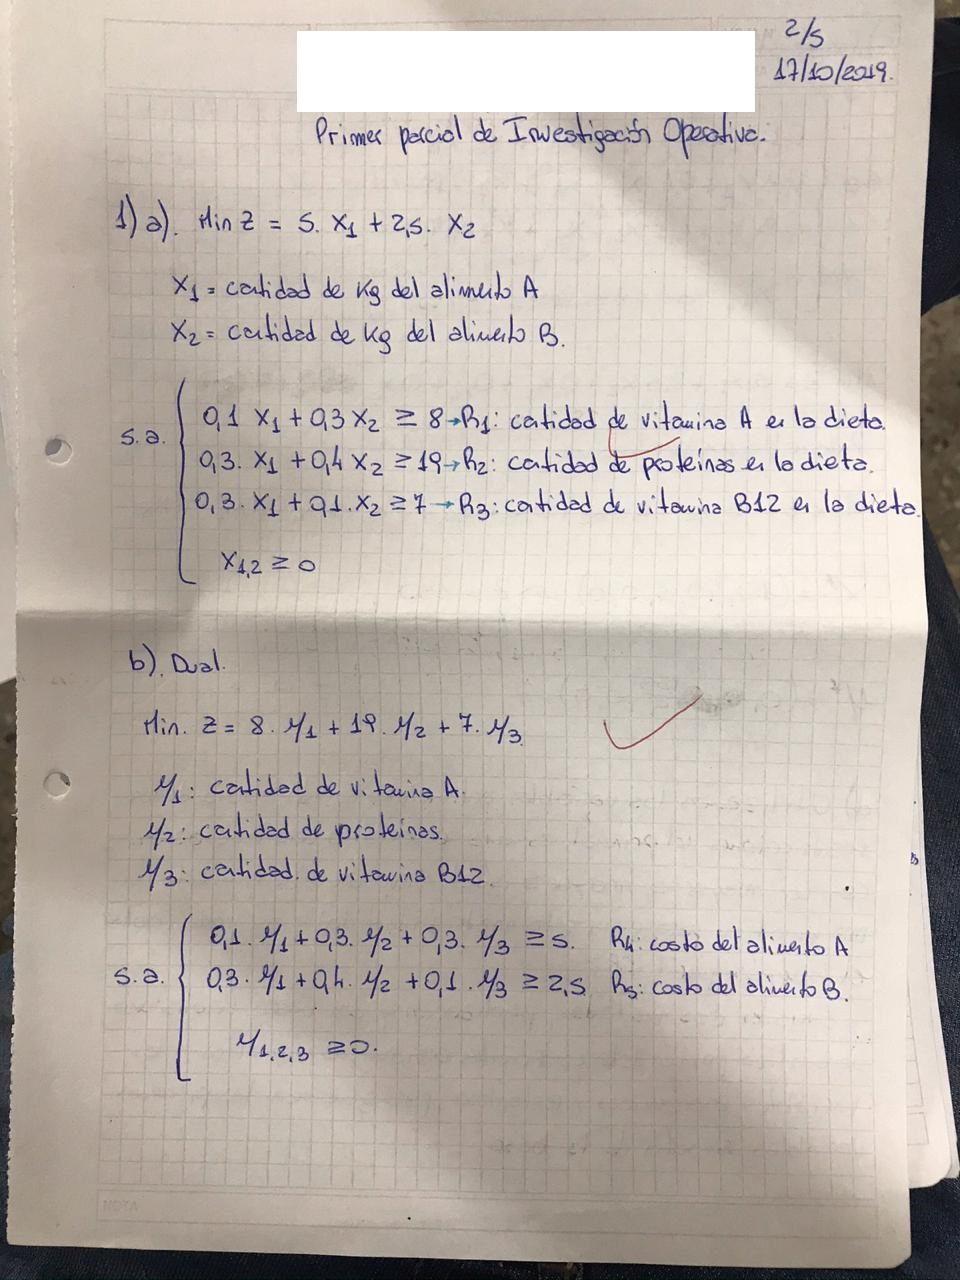 2/5
17/10/2019.
Primer parcial de Investigación Operativa.
1) a). Min Z = 5. X1 + 2,5. X2
X1 = cantidad de Kg del alimento A
X2 = cantidad de Kg del alimento B.
s.a.
0,1 X1 + 0,3 X2 ≥ 8 → R1: cantidad de vitamina A en la dieta.
0,3. X1 + 0,4 X2 ≥ 19 → R2: cantidad de proteínas en la dieta.
0,3. X1 + 0,1. X2 ≥ 7 → R3: cantidad de vitamina B12 en la dieta.
X1,2 ≥ 0
b). Dual.
Min. Z = 8. Y1 + 19. Y2 + 7. Y3
Y1: cantidad de vitamina A.
Y2: cantidad de proteínas.
Y3: cantidad de vitamina B12.
s.a.
0,1. Y1 + 0,3. Y2 + 0,3. Y3 ≥ 5. R4: costo del alimento A
0,3. Y1 + 0,4. Y2 + 0,1. Y3 ≥ 2,5 R5: costo del alimento B.
Y1,2,3 ≥ 0.
NOTA